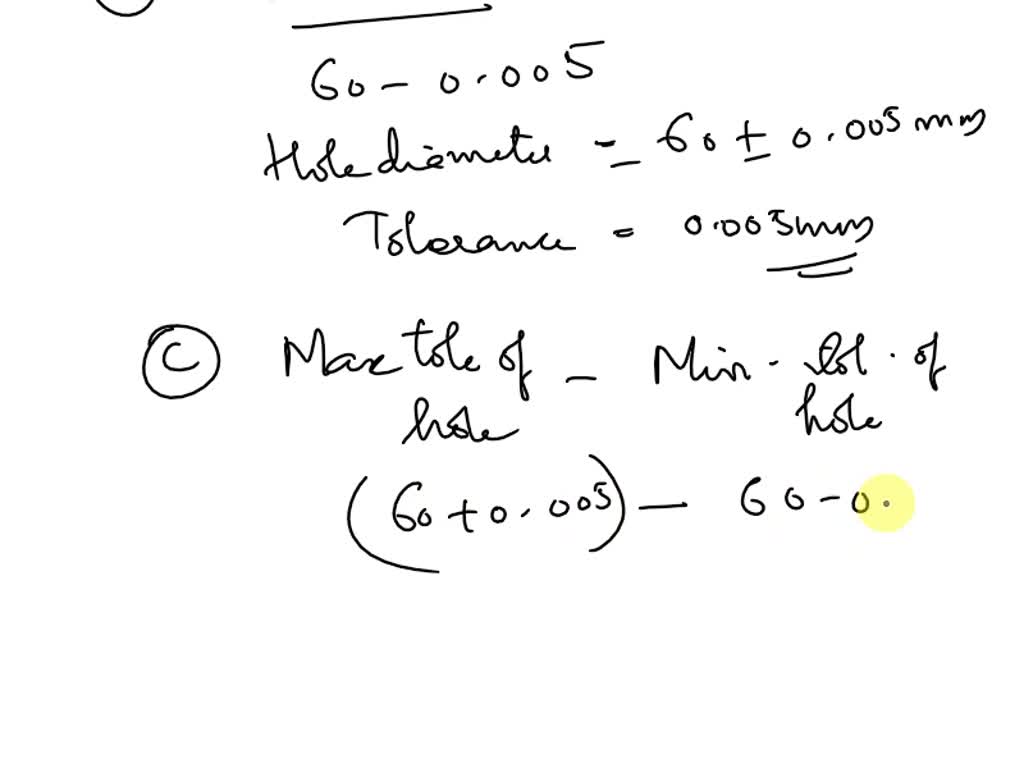 60 - 0.005
Hole diameter = 60 ± 0.005 mm
Tolerance = 0.005mm
C Max tole of hole - Min. tol. of hole
(60 + 0.005) - 60 - 0.